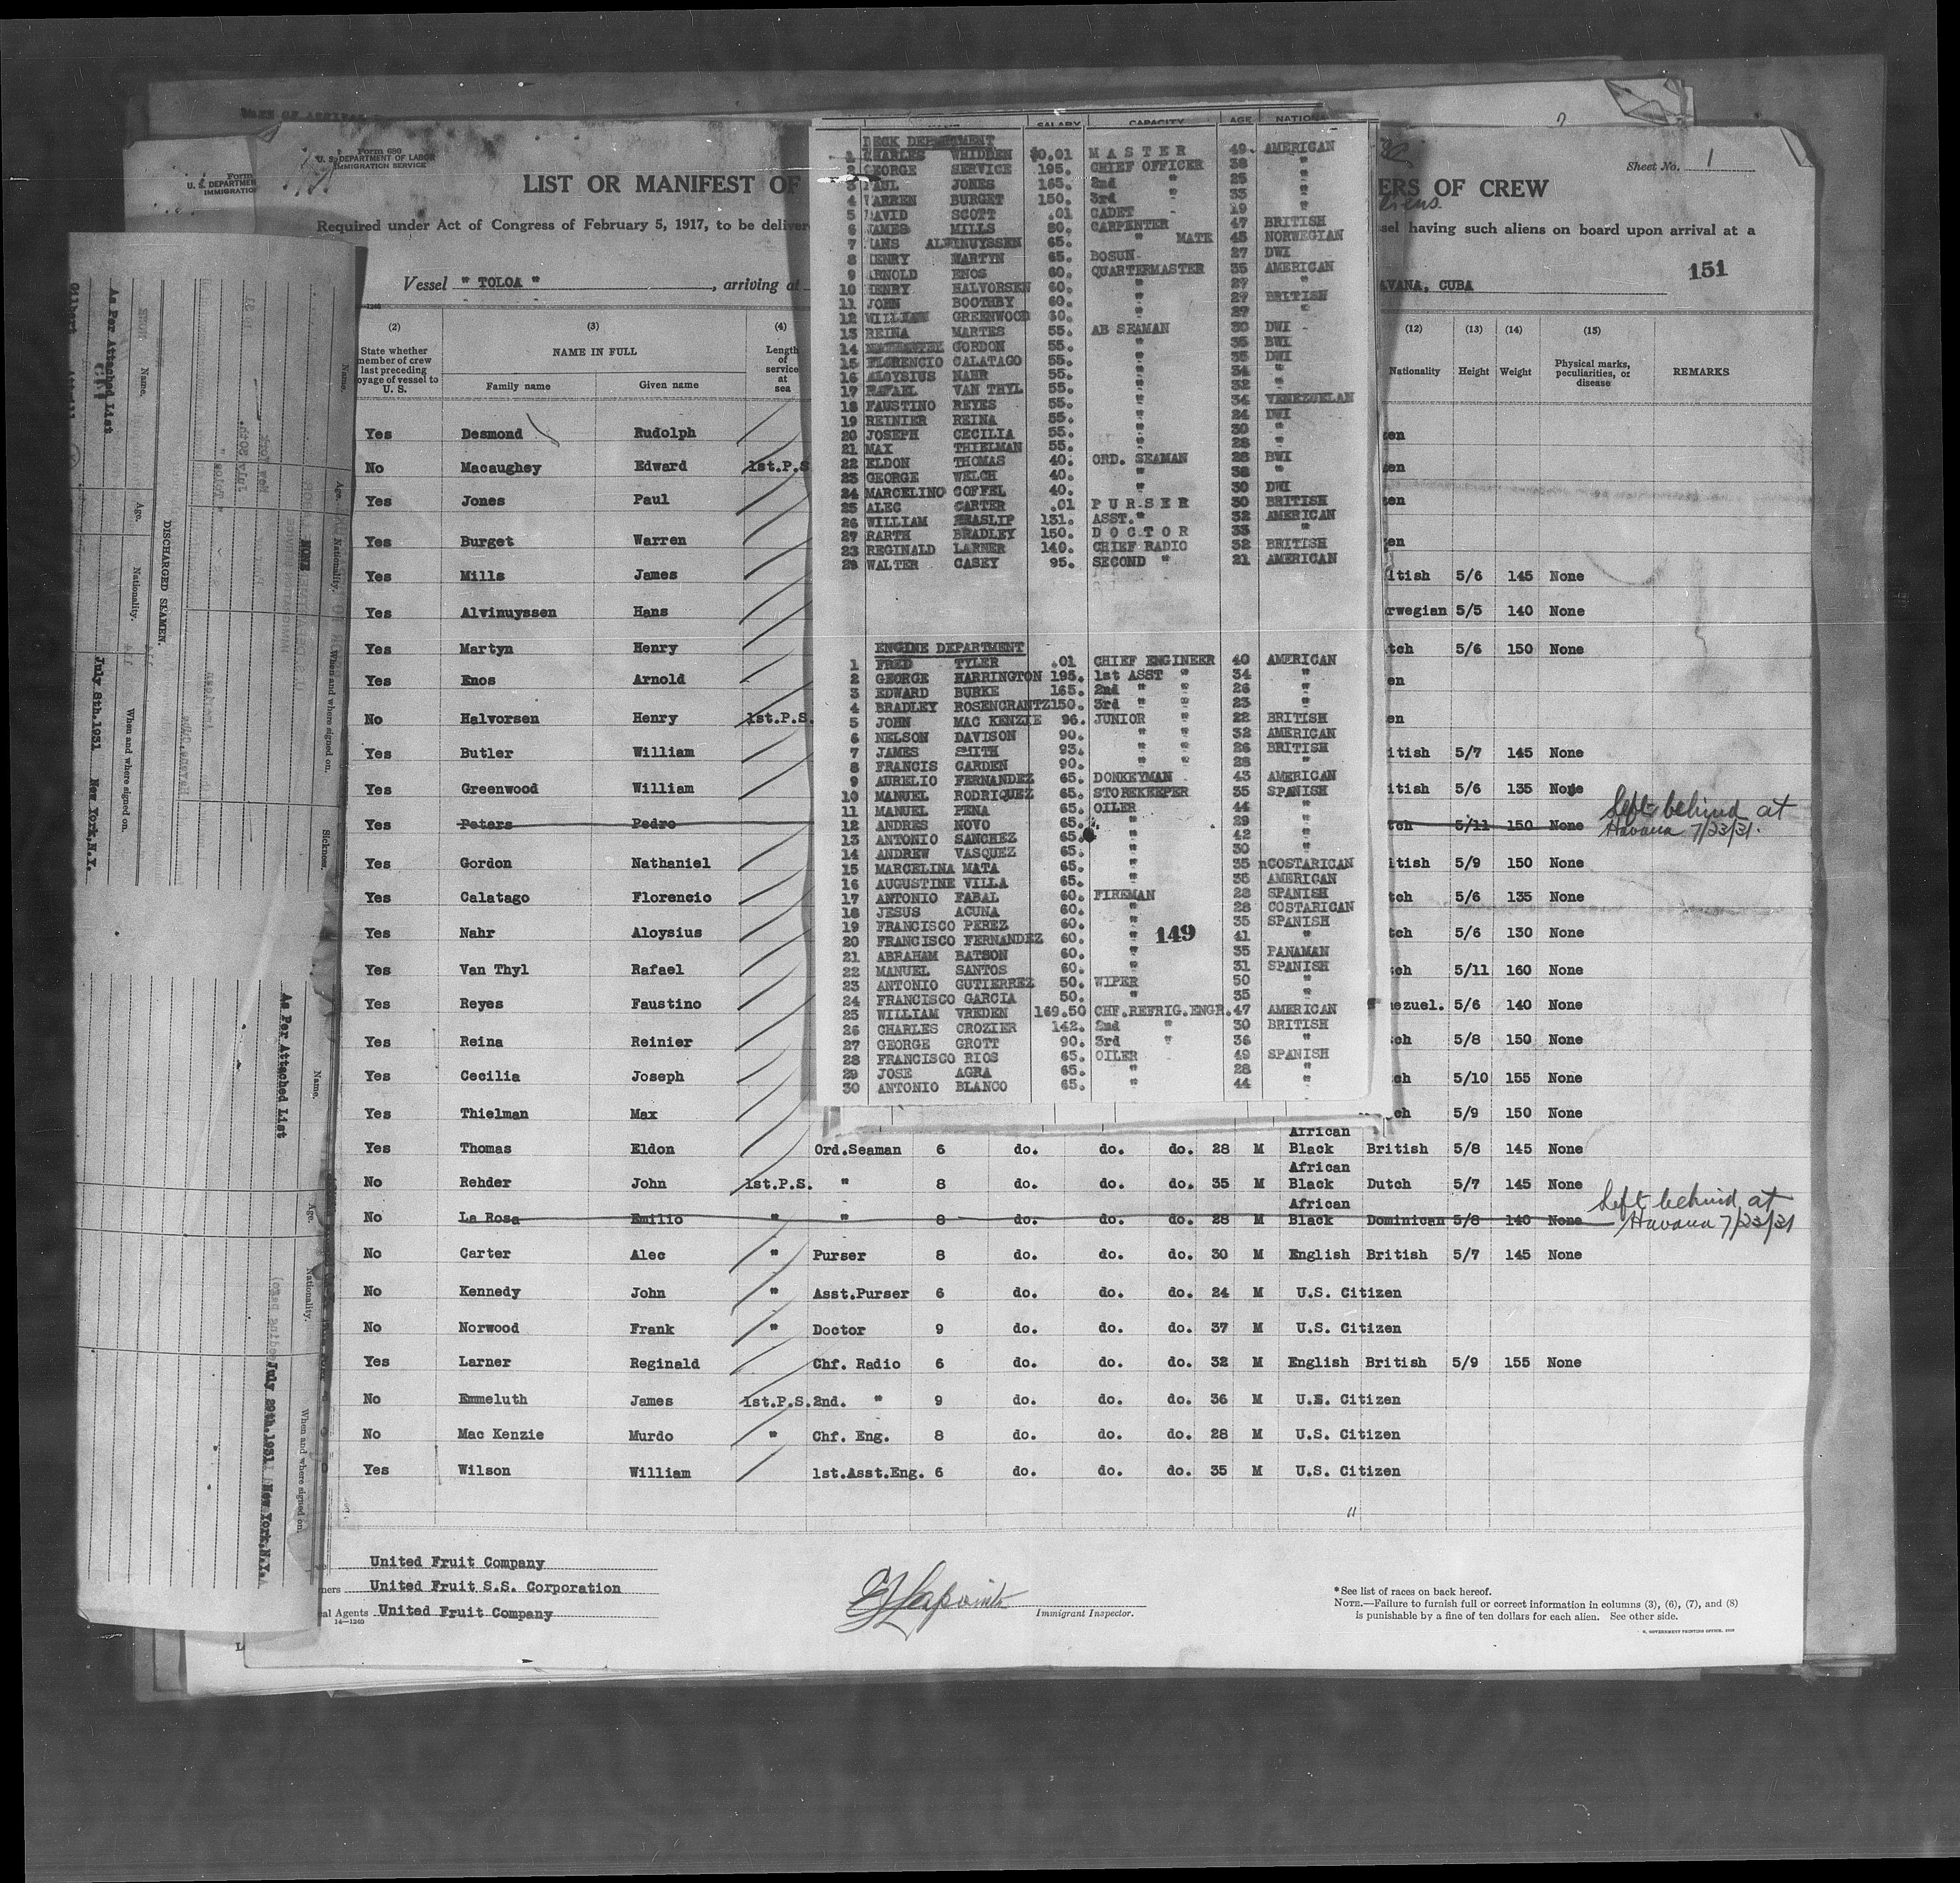 Form 680
U. S. DEPARTMENT OF LABOR
IMMIGRATION SERVICE
Form
U. S. DEPARTMEN
IMMIGRATIO
LIST OR MANIFEST OF
ERS OF CREW
Sheet No. 1
Required under Act of Congress of February 5, 1917, to be deliver
sel having such aliens on board upon arrival at a
Vessel " TOLOA " , arriving at
AVANA, CUBA
151
(2) (3) (4) (12) (13) (14) (15)
State whether member of crew last preceding oyage of vessel to U. S.
NAME IN FULL
Family name Given name
Length of service at sea
Nationality Height Weight Physical marks, peculiarities, or disease REMARKS
Yes Desmond Rudolph en
No Macaughey Edward 1st.P.S en
Yes Jones Paul en
Yes Burget Warren en
Yes Mills James itish 5/6 145 None
Yes Alvinuyssen Hans rwegian 5/5 140 None
Yes Martyn Henry tch 5/6 150 None
Yes Enos Arnold en
No Halvorsen Henry 1st.P.S. en
Yes Butler William itish 5/7 145 None
Yes Greenwood William itish 5/6 135 None
Yes Peters Pedro tch 5/11 150 None Left behind at Havana 7/23/31.
Yes Gordon Nathaniel itish 5/9 150 None
Yes Calatago Florencio tch 5/6 135 None
Yes Nahr Aloysius tch 5/6 130 None
Yes Van Thyl Rafael ch 5/11 160 None
Yes Reyes Faustino ezuel. 5/6 140 None
Yes Reina Reinier ch 5/8 150 None
Yes Cecilia Joseph ch 5/10 155 None
Yes Thielman Max ch 5/9 150 None
Yes Thomas Eldon Ord.Seaman 6 do. do. do. 28 M African Black British 5/8 145 None
No Rehder John 1st.P.S. " 8 do. do. do. 35 M African Black Dutch 5/7 145 None
No La Rosa Emilio " " 8 do. do. do. 28 M African Black Dominican 5/8 140 None Left behind at Havana 7/23/31
No Carter Alec " Purser 8 do. do. do. 30 M English British 5/7 145 None
No Kennedy John " Asst.Purser 6 do. do. do. 24 M U.S. Citizen
No Norwood Frank " Doctor 9 do. do. do. 37 M U.S. Citizen
Yes Larner Reginald Chf. Radio 6 do. do. do. 32 M English British 5/9 155 None
No Emmeluth James 1st.P.S. 2nd. " 9 do. do. do. 36 M U.S. Citizen
No Mac Kenzie Murdo " Chf. Eng. 8 do. do. do. 28 M U.S. Citizen
Yes Wilson William 1st.Asst.Eng. 6 do. do. do. 35 M U.S. Citizen
11
United Fruit Company
ners United Fruit S.S. Corporation
al Agents United Fruit Company
14—1240
Immigrant Inspector.
*See list of races on back hereof.
NOTE.—Failure to furnish full or correct information in columns (3), (6), (7), and (8)
is punishable by a fine of ten dollars for each alien. See other side.
SALARY CAPACITY AGE NATIONA
DECK DEPARTMENT
1 CHARLES WHIDDEN $0.01 M A S T E R 49 AMERICAN
2 GEORGE SERVICE 195. CHIEF OFFICER 38 "
3 PAUL JONES 165. 2nd " 25 "
4 WARREN BURGET 150. 3rd " 33 "
5 DAVID SCOTT .01 CADET 19 "
6 JAMES MILLS 80. CARPENTER 47 BRITISH
7 HANS ALWINUYSSEN 65. " MATE 45 NORWEGIAN
8 HENRY MARTYN 65. BOSUN 27 DWI
9 ARNOLD ENOS 60. QUARTERMASTER 35 AMERICAN
10 HENRY HALVORSEN 60. " 27 "
11 JOHN BOOTHBY 60. " 27 BRITISH
12 WILLIAM GREENWOOD 60. " 27 "
13 REINA MARTES 55. AB SEAMAN 30 DWI
14 GORDON 55. " 35 BWI
15 FLORENCIO CALATAGO 55. " 35 DWI
16 ALOYSIUS NAHR 55. " 34 "
17 RAFAEL VAN THYL 55. " 32 "
18 FAUSTINO REYES 55. " 34 VENEZUELAN
19 REINIER REINA 55. " 24 DWI
20 JOSEPH CECILIA 55. " 30 "
21 MAX THIELMAN 55. " 28 "
22 ELDON THOMAS 40. ORD. SEAMAN 28 BWI
23 GEORGE WELCH 40. " 38 "
24 MARCELINO GOFFEL 40. " 30 DWI
25 ALEC CARTER .01 P U R S E R 30 BRITISH
26 WILLIAM HEASLIP 131. ASST. " 32 AMERICAN
27 RARTH BRADLEY 150. D O C T O R 33 "
23 REGINALD LARNER 140. CHIEF RADIO 32 BRITISH
29 WALTER CASEY 95. SECOND " 21 AMERICAN
ENGINE DEPARTMENT
1 FRED TYLER .01 CHIEF ENGINEER 40 AMERICAN
2 GEORGE HARRINGTON 195. 1st ASST " 34 "
3 EDWARD BURKE 165. 2nd " " 26 "
4 BRADLEY ROSENCRANTZ 150. 3rd " " 23 "
5 JOHN MAC KENZIE 96. JUNIOR " 22 BRITISH
6 NELSON DAVISON 90. " " 32 AMERICAN
7 JAMES SMITH 93. " " 26 BRITISH
8 FRANCIS CARDEN 90. " " 28 "
9 AURELIO FERNANDEZ 65. DONKEYMAN 43 AMERICAN
10 MANUEL RODRIQUEZ 65. STOREKEEPER 35 SPANISH
11 MANUEL PENA 65. OILER 44 "
12 ANDRES NOVO 65. " 29 "
13 ANTONIO SANCHEZ 65. " 42 "
14 ANDREW VASQUEZ 65. " 30 "
15 MARCELINA MATA 65. " 35 COSTARICAN
16 AUGUSTINE VILLA 65. " 36 AMERICAN
17 ANTONIO FABAL 60. FIREMAN 28 SPANISH
18 JESUS ACUNA 60. " 28 COSTARICAN
19 FRANCISCO PEREZ 60. " 35 SPANISH
20 FRANCISCO FERNANDEZ 60. " 41 "
149
21 ABRAHAM BATSON 60. " 35 PANAMAN
22 MANUEL SANTOS 60. " 31 SPANISH
23 ANTONIO GUTIERREZ 50. WIPER 50 "
24 FRANCISCO GARCIA 50. " 35 "
25 WILLIAM VREDEN 169.50 CHF.REFRIG.ENGR. 47 AMERICAN
26 CHARLES CROZIER 142. 2nd " 30 BRITISH
27 GEORGE GROTT 90. 3rd " 36 "
28 FRANCISCO RIOS 65. OILER 49 SPANISH
29 JOSE AGRA 65. " 28 "
30 ANTONIO BLANCO 65. " 44 "
As Per Attached List
July 8th.1931 New York,N.Y.
Name. Age. Nationality. When and where signed on.
DISCHARGED SEAMEN.
Name. Age. Nationality. When and where signed on. Sickness.
NONE
As Per Attached List
July 29th.1931 New York,N.Y.
Name. Age. Nationality. When and where signed on.